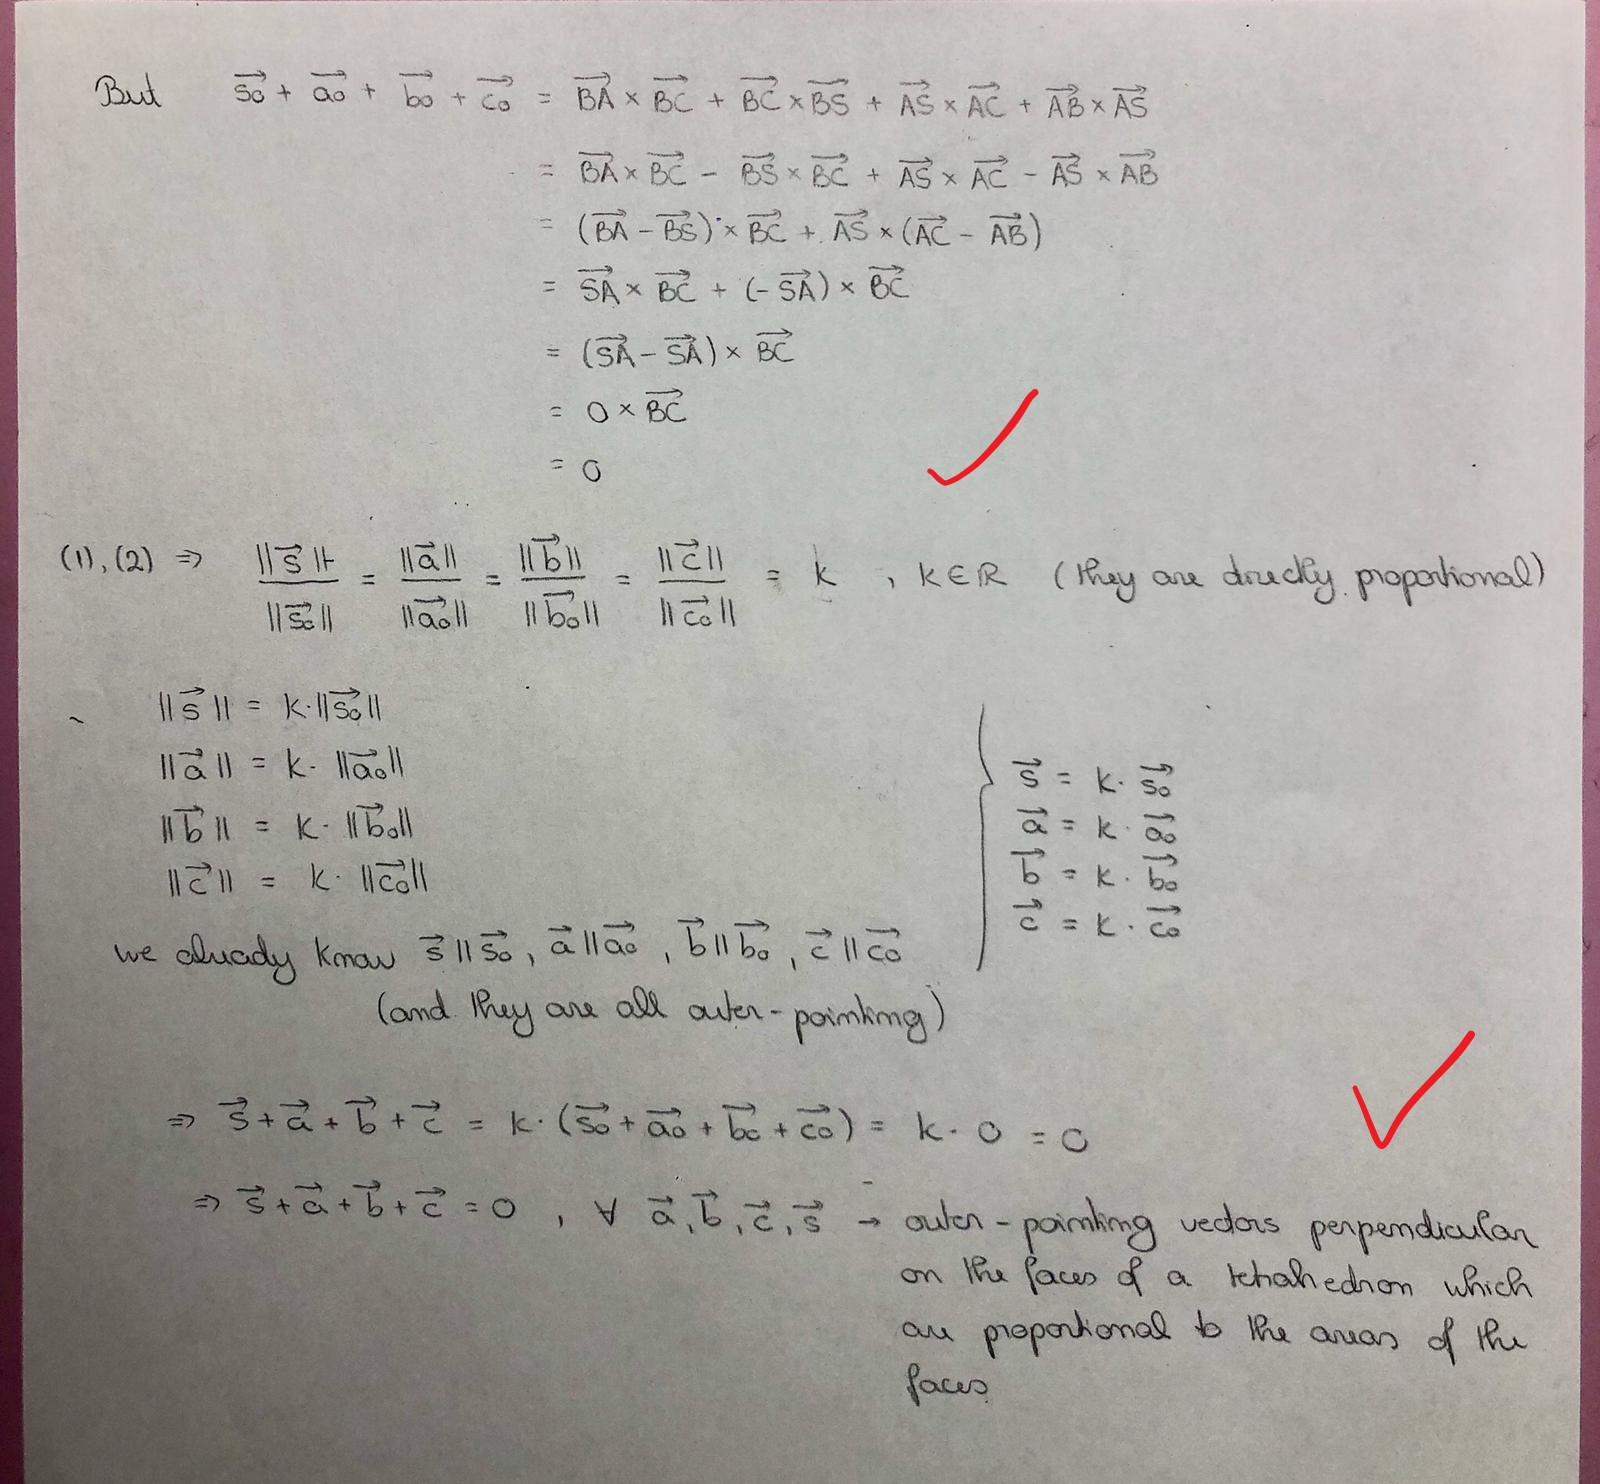 But s⃗₀ + a⃗₀ + b⃗₀ + c⃗₀ = B⃗A⃗ × B⃗C⃗ + B⃗C⃗ × B⃗S⃗ + A⃗S⃗ × A⃗C⃗ + A⃗B⃗ × A⃗S⃗
= B⃗A⃗ × B⃗C⃗ - B⃗S⃗ × B⃗C⃗ + A⃗S⃗ × A⃗C⃗ - A⃗S⃗ × A⃗B⃗
= (B⃗A⃗ - B⃗S⃗) × B⃗C⃗ + A⃗S⃗ × (A⃗C⃗ - A⃗B⃗)
= S⃗A⃗ × B⃗C⃗ + (-S⃗A⃗) × B⃗C⃗
= (S⃗A⃗ - S⃗A⃗) × B⃗C⃗
= 0 × B⃗C⃗
= 0
(1), (2) ⇒ ||s⃗||/||s⃗₀|| = ||a⃗||/||a⃗₀|| = ||b⃗||/||b⃗₀|| = ||c⃗||/||c⃗₀|| = k , k ∈ ℝ (they are directly proportional)
||s⃗|| = k·||s⃗₀||
||a⃗|| = k·||a⃗₀||
||b⃗|| = k·||b⃗₀||
||c⃗|| = k·||c⃗₀||
we already know s⃗ || s⃗₀, a⃗ || a⃗₀, b⃗ || b⃗₀, c⃗ || c⃗₀
(and they are all outer-pointing)
s⃗ = k·s⃗₀
a⃗ = k·a⃗₀
b⃗ = k·b⃗₀
c⃗ = k·c⃗₀
⇒ s⃗ + a⃗ + b⃗ + c⃗ = k·(s⃗₀ + a⃗₀ + b⃗₀ + c⃗₀) = k·0 = 0
⇒ s⃗ + a⃗ + b⃗ + c⃗ = 0 , ∀ a⃗, b⃗, c⃗, s⃗ → outer-pointing vectors perpendicular
on the faces of a tetrahedron which
are proportional to the areas of the
faces